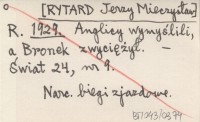 [RYTARD Jerzy Mieczysław]
R. 1929. Anglicy wymyślili,
a Bronek zwyciężył. –
Świat 24, nr 9.
Narc. biegi zjazdowe.
BJ7093/0879